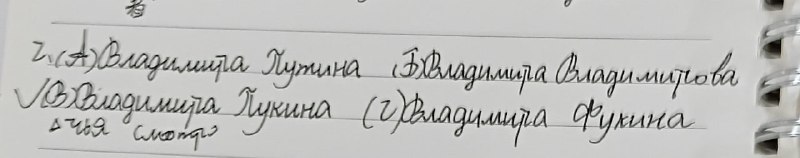 2.(А)Владимира Путина (Б)Владимира Владимирова
√(В)Владимира Пукина (Г)Владимира Фукина
чья смотр